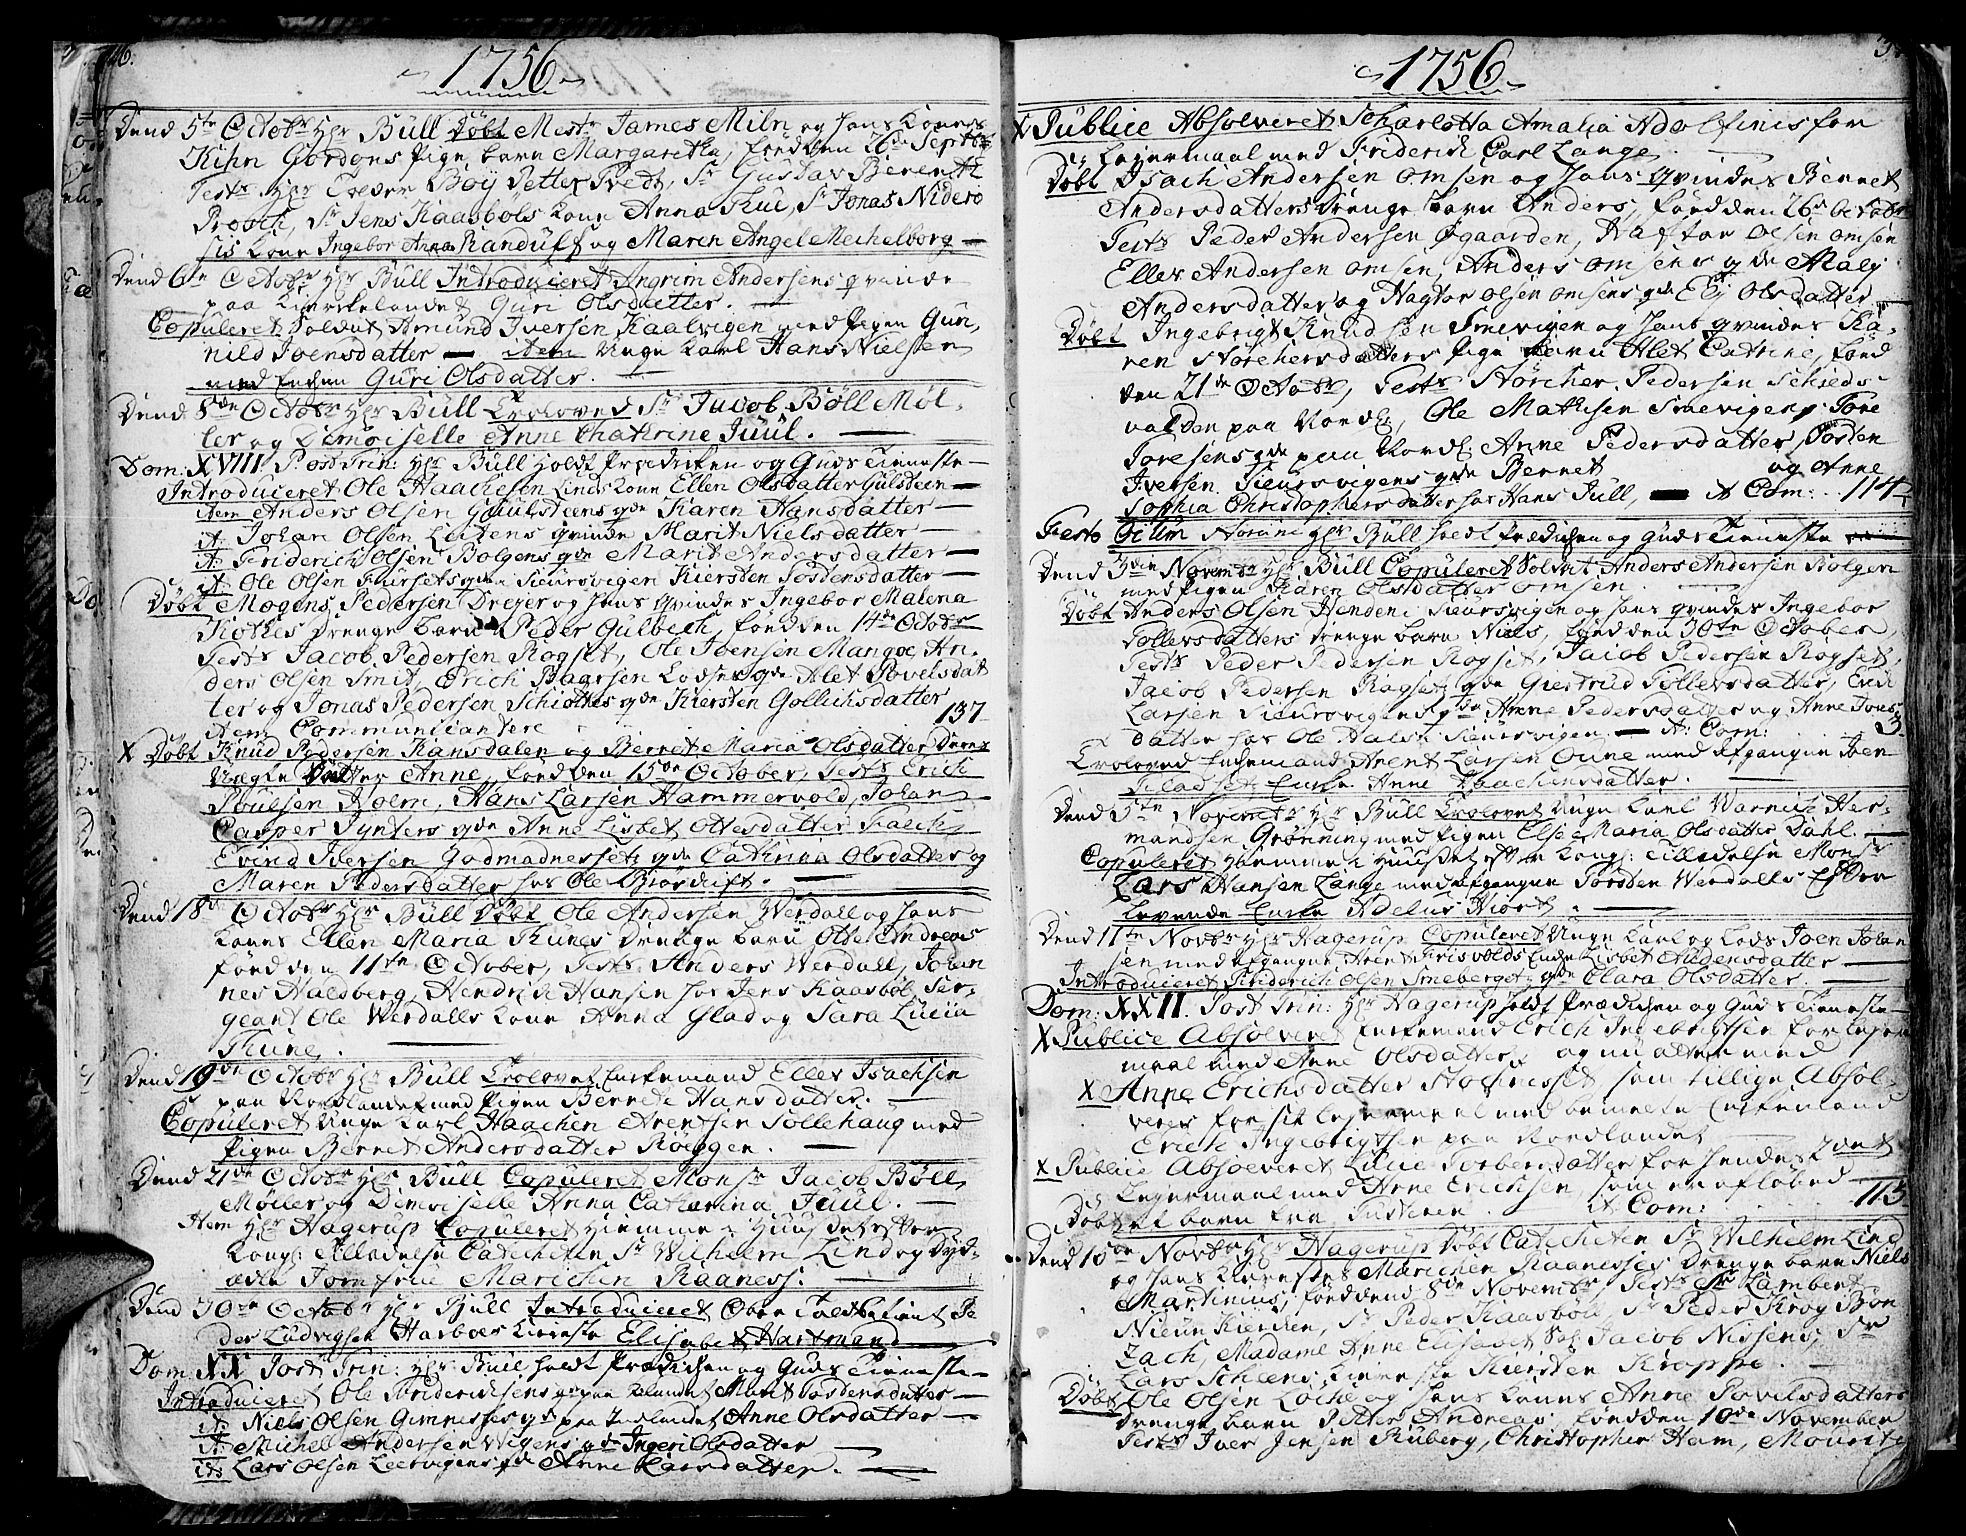 46.
1756
Dend 5te Octobr Hr Büll Döbt Mestr James Miln og hans Kones
Kihn Gordons Pige barn Margaretha, föd den 26de Septbr
Test: Hr Boÿ Petter Tvedt, Sr Gustav Berentz
Sr Jens Kaasböls Kone Anna Thue, Sr Jonas Nidero
sis Kone Ingebor Anna Randulf og Maren Angel Meihelborg
Dend 6te Octobr Hr Büll Introduceret Angrim Andersens qvinde
paa Kirkelandet Guri Olsdatter.
Copuleret Soldat Amund Iversen Kaalvigen med Pigen Gun,
nild Joensdatter - item Unge Karl Hans Nielsen
med Enken Guri Olsdatter.
Dend 8de Octobr Hr Büll Troloved Sr Jacob Böll Möl,
ler og Dimoiselle Anne Chatrine Juul.
Dom: XVIII. Post Trin: Hr Büll holdt Prædiken og Guds Tieneste
Introduceret Ole Haachesen Linds Kone Ellen Olsdatter Gulsteen
item Anders Olsen Gaulsteens qde Karen Hansdatter
it Johan Olsen Leehens qvinde Marit Nielsdatter
it Friderich Olsen Bolgens qde Marit Andersdatter
it Ole Olsen Fursets qde Sieursvigen Kiersten Tostensdatter
Döbt Mogens Pedersen Dreyer og hans qvindes Ingebor Malena
Kothes drenge barn Peder Gulbech, föd den 14de Octobr
Test: Jacob Pedersen Rogset, Ole Joensen Mangve, An,
ders Olsen Smit, Erich Baarsen Lodses qde Alet Povelsdat
ter og Jonas Pedersen Schiöttes qde Kiersten Gollichsdatter
item Communicantere 137
X Döbt Knud Pedersen Hansdalen og Bernet Maria Olsdatter Deres
Uægte Datter Anne, föd den 15de October, Test: Erich
Poulsen Holm, Hans Larsen Hammervold, Johan
Casper Synters qde Anne Lisbet Ottesdatter Falch
Evind Iversen Godmadnesset qde Cathrina Olsdatter og
Maren Pedersdatter hos Ole Biördrift.
Dend 18de Octobr Hr Büll Döbt Ole Andersen Werdall og hans
Kones Ellen Maria Thunes drenge barn Otte Andreas
föd den 11te October, Test: Anders Werdall, Johan
nes Haldberg, Hendrich Hansen hos Jens Kaasböl, Ser-
geant Ole Werdalls Kone Anna Glad og Sara Lucia
Thune.
Dend 19de Octobr Hr Büll Trolovet Enkemand Ellev Isachsen
paa Nordlandet med Pigen Bernete Hansdatter.
Copuleret Unge Karl Haachen Arentsen Sollehaug med
Pigen Bernet Andersdatter Röeggen.
Dend 21de Octobr Hr Büll Copuleret Monsr Jacob Böll
Möller og Dimoiselle Anna Catharina Juul.
Item Hr Hagerup Copuleret hiemme i Huuset efter
Kongl: Tilladelse Catecheten Sr Wilhelm Lind og Dÿd:
ædle Jomfrue Marichen Raaness:
Dend 30te Octobr Hr Büll Introduceret Over Toldbetient Pe
der Ludvigsen Harboes Kiereste Elisabet Hartmand
Dom XX Post Trin: Hr Büll holdt Prædichen og Guds Tieneste
Introduceret Ole Friderichsens qde paa Landet Marit Tostensdatter
it Niels Olsen Gimnisses qde paa Inlandet Anne Olsdatter
it Michel Andersen Wigens qde Ingeri Olsdatter
it: Lars Olsen Leervigens qde Anne Larsdatter.
1756
X Publice Absolveret Scharlotta Amalia Adolfinis for
Lejermaal med Friderich Carl Lange
Döbt Isach Andersen Omsen og hans qvindes Bernet
Andersdatters drenge barn Anders, föd den 26de Octobr
Test: Peder Andersen Ögaarden, Hagtor Olsen Omsen
Ellev Andersen Omsen, Anders Omsens qde Malj
Andersdatter og Hagtor Olsen Omsens qde Elj Olsdatter
Döbt Ingebrigt Knudsen Smevigen og hans qvindes Ka,
ren Störchersdatters Pige barn Alet Catrine, föd
den 21de Octobr, Test: Störcher Pedersen Schieds-
valden paa Nordl, Ole Mathisen Smevigen, Tore
Toresens qde paa Nordl Anne Pedersdatter, Tosten
Iversen Sieursvigens qde Bernet og Anne
Sophia Christophersdatter hos Hans Jull, - it Com: 114
Festo Omn: Hr Büll holdt Prædichen og Guds Tieneste
Dend 3die Novembr Hr Büll Copuleret Soldat Anders Andersen Bolgen
med Pigen Karen Olsdatter Omsen
Döbt Anders Olsen Henden i Sieursvigen og hans qvindes Ingebor
Tollevsdatters drenge barn Niels, föd den 30te October,
Test: Peder Pedersen Rogset, Jacob Pedersen Rogset,
Jacob Pedersen Ragsets qde Giertrud Tollevsdatter, Erich
Larsen Sieursvigens qde Anne Pedersdatter og Anne Jons
datter hos Ole Halsen Sieursvigen - it Com: 3
Troloved Enkemand Arent Larsen Oune med afgangne Joen
Enke Anne Haachensdatter.
Dend 5te Novembr Hr Büll Trolovet Unge Karl Warniche Her-
mandsen Grönning med Pigen Else Maria Olsdatter Dahl.
Copuleret hiemme i Huuset efter Kongl: Tilladelse Monsr
Lars Hansen Lange med afgangne Torsten Werdalls Efter
levende Enke Adelus Hiort
Dend 11te Novbr Hr Hagerup Copuleret Unge Karl og Lods Joen Johan
sen med afgangne Arent Frisvolds Enke Lisbet Andersdatter
Introduceret Friderich Olsen Smebergets qde Clara Olsdatter.
Dom: XXII. Post Trin: Hr Hagerup holdt Prædichen og Guds Tieneste
X Publice Absolveret Enkemand Erich Ingebrigtsen for Lejer
maal med Anne Olsdatter, og nu atter med
X Anne Erichsdatter Stochnesset, som tillige Absol-
veres for sit Lejermaal med bemelte Enkemand
Erich Ingebrigtsen paa Nordlandet
X Publice Absolveret Lucie Torbersdatter for hendes 2det
Lejermaal med Arne Erichsen, som er afløbed
Döbt et barn fra Tusteren. it Com: 113
Dend 18de Novbr Hr Hagerup Döbt Catecheten Sr Wilhelm Lind
og hans Kierestes Marichen Raanesses Drenge barn Niels
Martinius, föd den 8de Novembr Test: Sr Lambert
Nieun Kierchen, Sr Peder Kaasböll, Sr Peder Krog Bon
Zach, Madame Anne Elisabet Sal: Jacob Nissens, Sr
Lars Scheens Kiereste Kiersten Kroppe.
Döbt Ole Olsen Loche og hans Kones Anne Povelsdatters
drenge barn Petter Andreas föd den 10de November
Test: Iver Jensen Ruberg, Christopher Ham, Mouritz